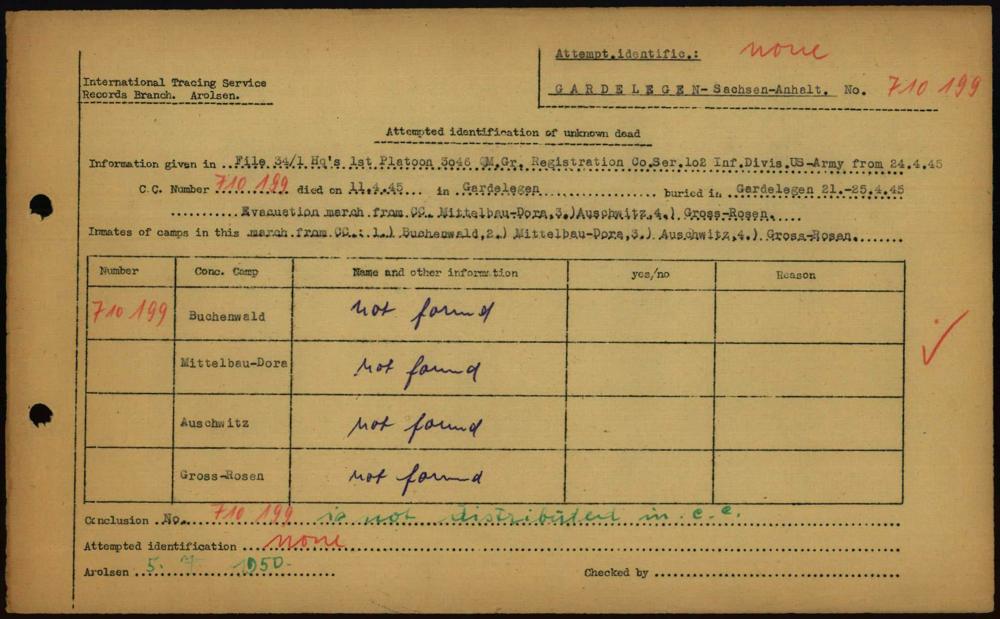 Attempt.identific.: none
International Tracing Service
Records Branch. Arolsen.
GARDELEGEN-Sachsen-Anhalt. No. 710 199
Attempted identification of unknown dead
Information given in File 34/1 Hq's 1st Platoon 3046 QM.Gr. Registration Co.Ser.102 Inf.Divis.US-Army from 24.4.45
C.C. Number 710 199 died on 11.4.45 in Gardelegen buried in Gardelegen 21.-25.4.45
Evacuation march from CC. Mittelbau-Dora,3.)Auschwitz,4.) Gross-Rosen.
Inmates of camps in this march from CC.: 1.) Buchenwald,2.) Mittelbau-Dora,3.) Auschwitz,4.) Gross-Rosen.
Number Conc. Camp Name and other information yes/no Reason
710 199 Buchenwald not found
Mittelbau-Dora not found
Auschwitz not found
Gross-Rosen not found
Conclusion No. 710 199 is not distributed in c.c.
Attempted identification none
Arolsen 5. 7. 1950. Checked by